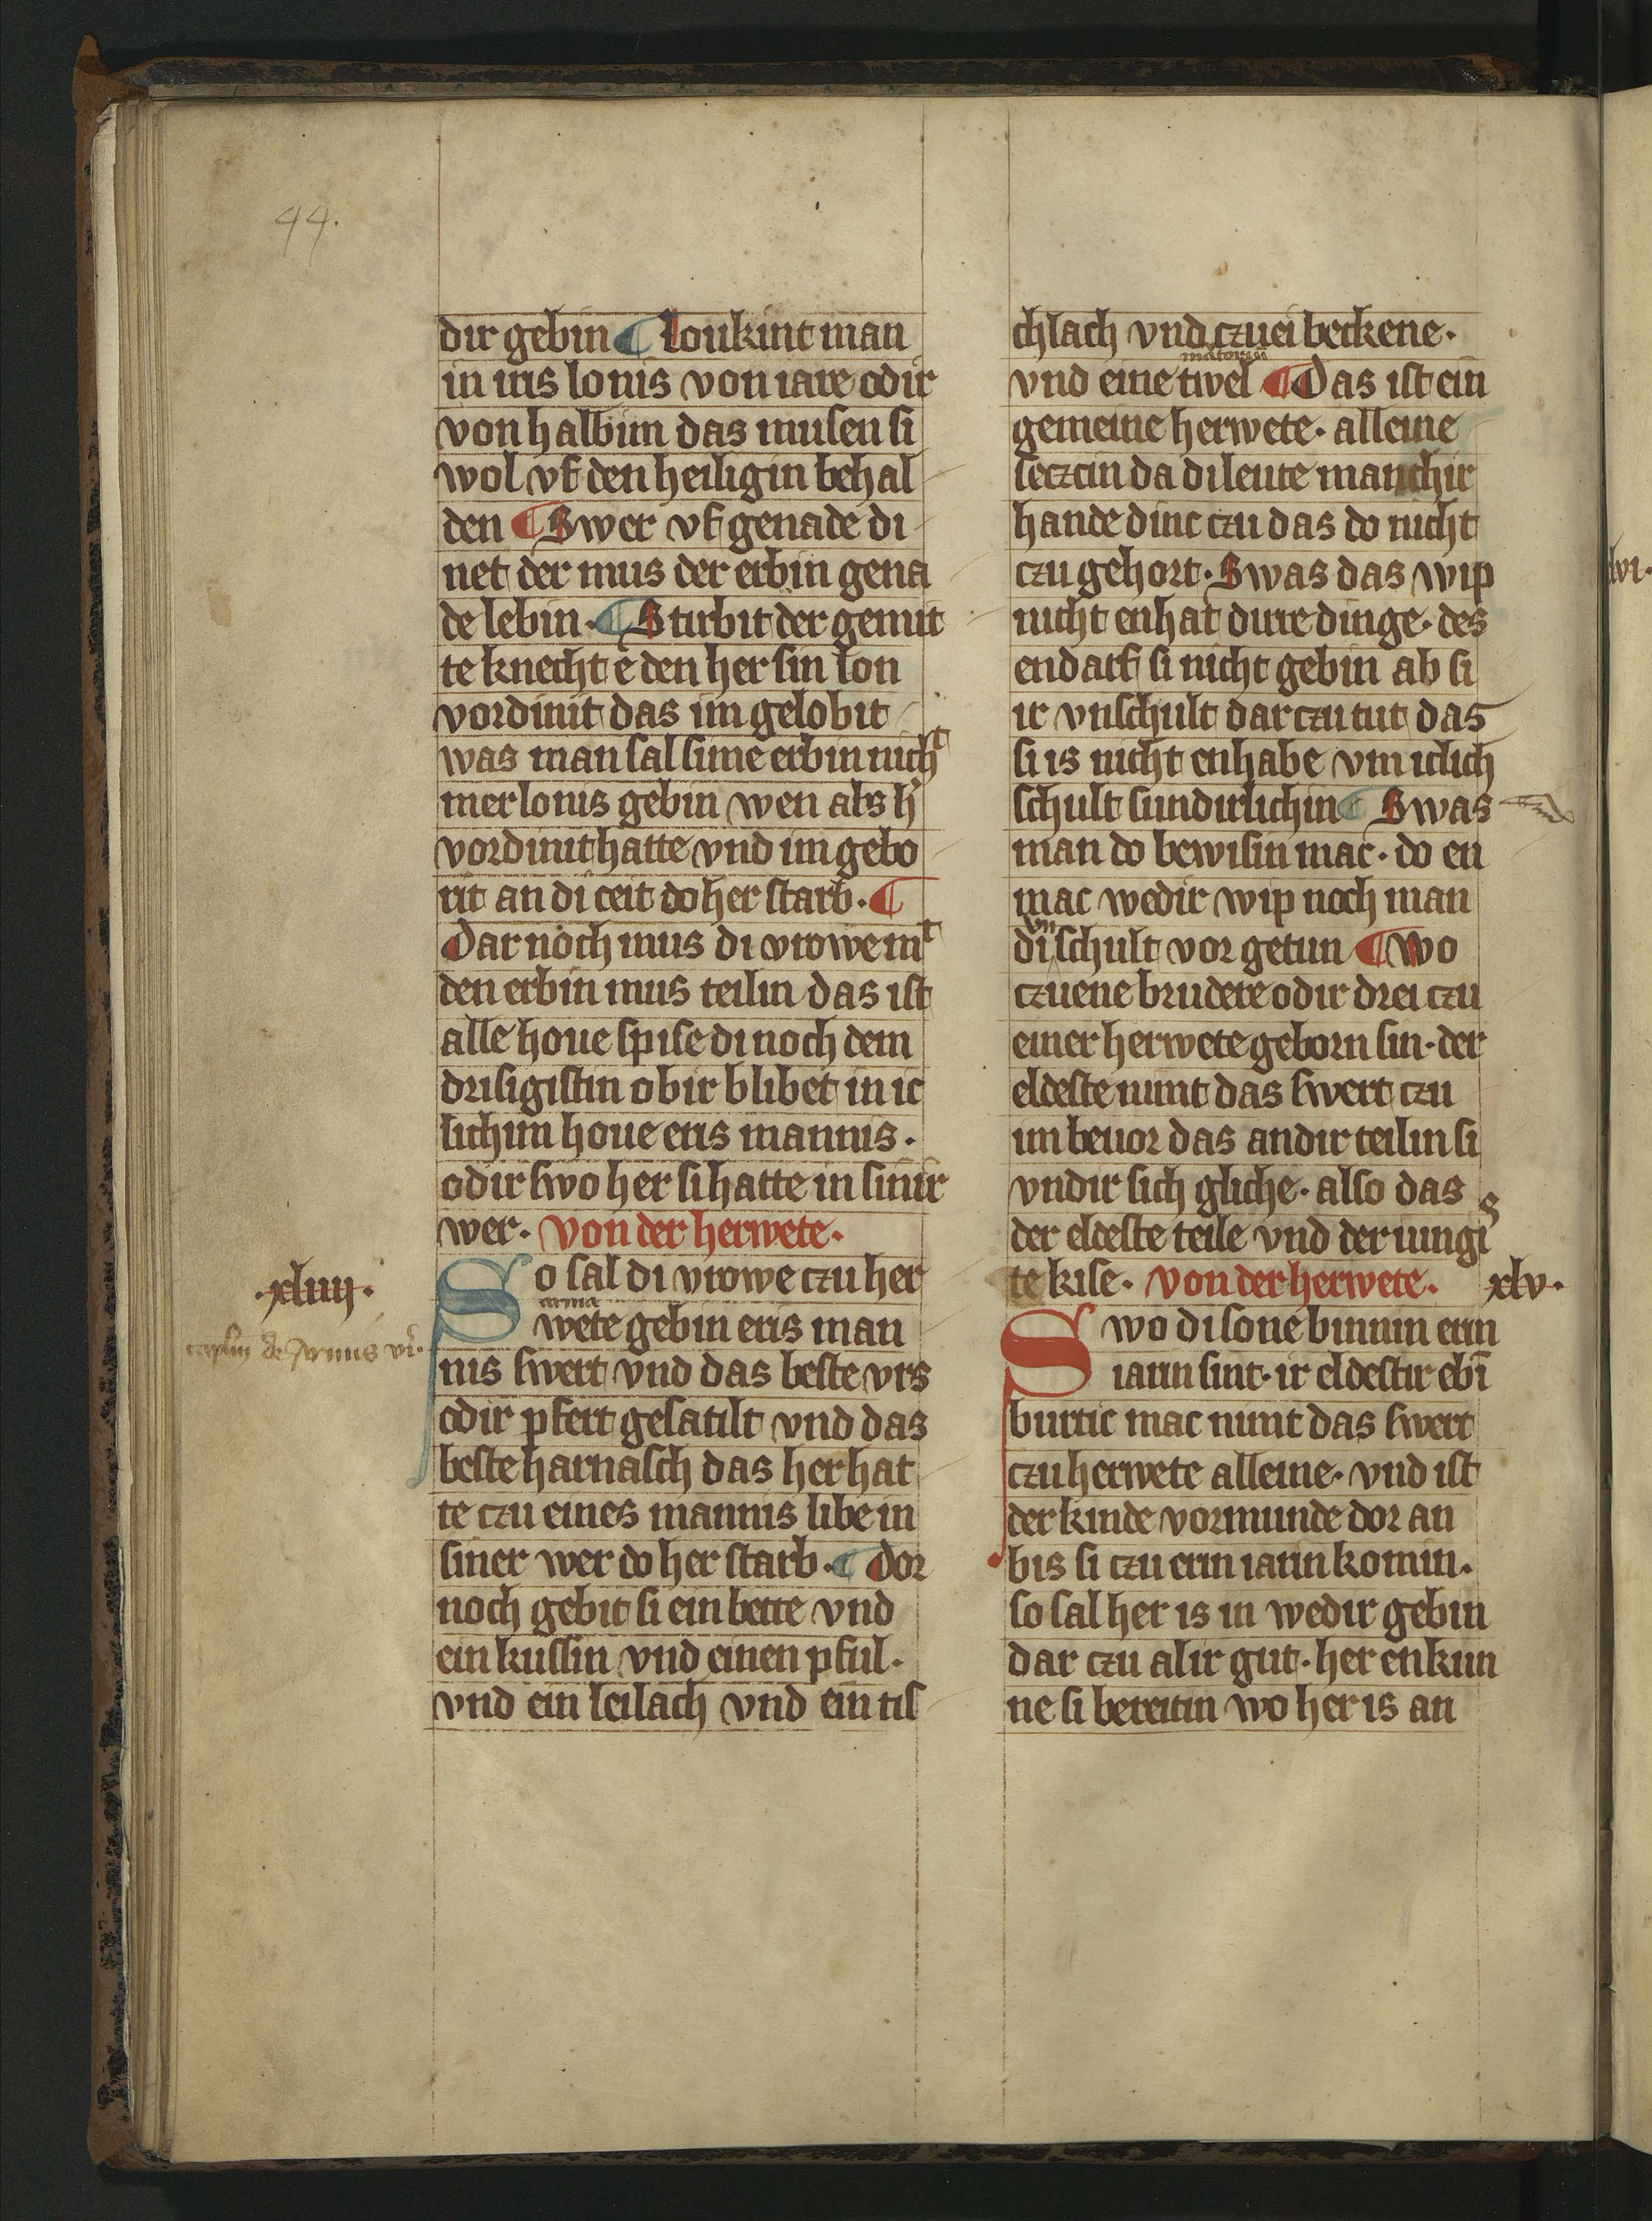 44.
dir gebin ¶ loukint man
in iris lonis von iare odir
von halbim das musen si
wol vf den heiligin behal
den ¶ Swer vf genade di
net der mus der erbin gena
de lebin. ¶ Stirbit der gemit
te knecht e den her sin lon
vordinit das im gelobit
was man sal sime erbin nicht
mer lonis gebin wen als h͛
vordinit hatte vnd im gebo
rit an di ceit do her starb. ¶
Dar noch mus di vrowe mᵗ
den erbin mus teilin das ist
alle houe spise di noch dem
drisigistin obir blibet in ic
lichim houe eris mannis.
odir swo her si hatte in sinir
wer. Von der herwete.
.xliiij.
So sal di vrowe czu her
arma
wete gebin eris man
de armis
nis swert vnd das beste vrs
odir pfert gesatilt vnd das
beste harnasch das her hat
te czu eines mannis libe in
siner wer do her starb. ¶ Dor
noch gebit si ein bette vnd
ein kussin vnd einen pful.
vnd ein leilach vnd ein tis
chlach vnd czuei beckene.
vnd eine twel ¶ Das ist ein
gemeine herwete. alleine
seczcin da di leute manchir
hande dinc czu das do nicht
czu gehort. Swas das wip
nicht enhat dirre dinge. des
endarf si nicht gebin ab si
ir vnschult dar czu tut das
si is nicht enhabe vm iclich
schult sundirlichin ¶ Swas
man do bewisin mac. do en
mac wedir wip noch man
vn
di schult vor getun ¶ Wo
czuene brudere odir drei czu
einer herwete geborn sin. der
eldeste nimt das swert czu
im beuor das andir teilin si
vndir sich gliche. also das
der eldeste teile vnd der iungis
te kise. Von der herwete. xlv.
Swo di sone binnin erin
iarin sint. ir eldestir ebī
burtic mac nimt das swert
czu herwete alleine. vnd ist
der kinde vormunde dor an
bis si czu erin iarin komin.
so sal her is in wedir gebin
dar czu al ir gut. her enkun
ne si bereitin wo her is an